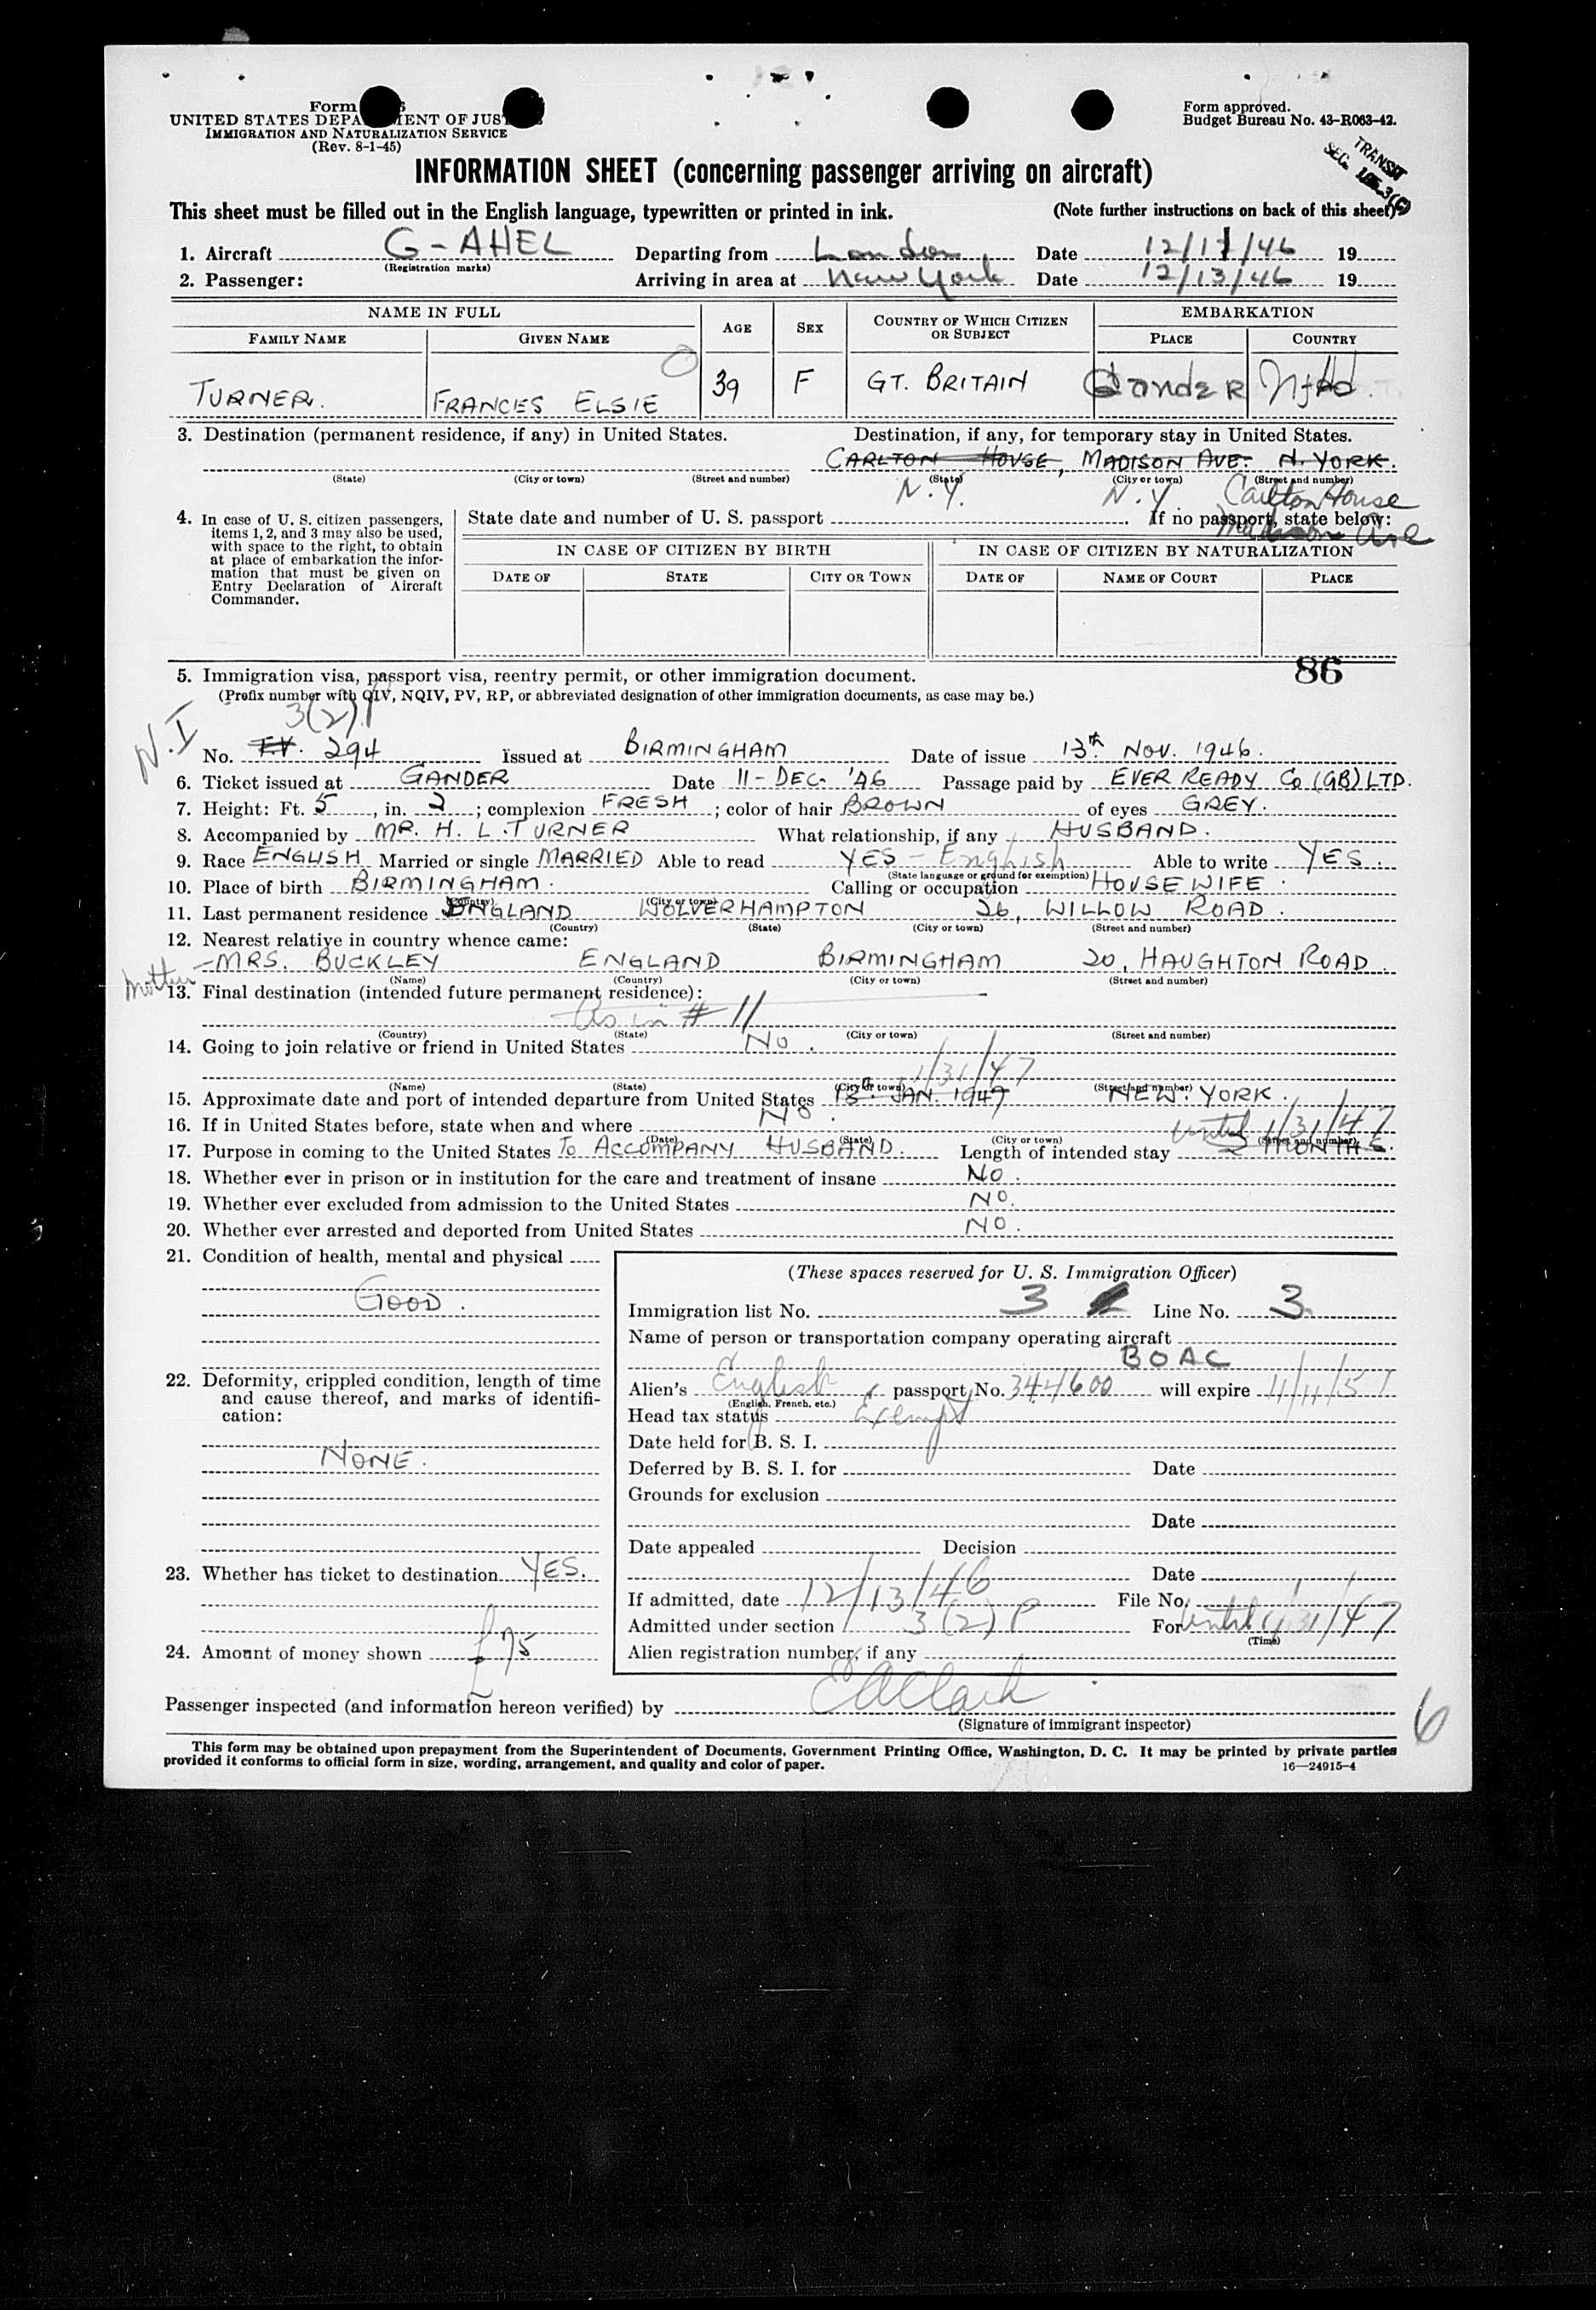 Form
UNITED STATES DEPA MENT OF JUS
IMMIGRATION AND NATURALIZATION SERVICE
(Rev. 8-1-45)
Form approved.
Budget Bureau No. 43-R063-42.
TRANSIT
SEC.
INFORMATION SHEET (concerning passenger arriving on aircraft)
This sheet must be filled out in the English language, typewritten or printed in ink. (Note further instructions on back of this sheet)
1. Aircraft G-AHEL Departing from London Date 12/11/46 19
(Registration marks)
2. Passenger: Arriving in area at New York Date 12/13/46 19
NAME IN FULL AGE SEX COUNTRY OF WHICH CITIZEN OR SUBJECT EMBARKATION
FAMILY NAME GIVEN NAME PLACE COUNTRY
TURNER. FRANCES ELSIE 39 F GT. BRITAIN Gander Nfld
3. Destination (permanent residence, if any) in United States. Destination, if any, for temporary stay in United States.
CARLTON HOUSE, MADISON AVE. N. YORK.
(State) (City or town) (Street and number) (State) (City or town) (Street and number)
N.Y. N.Y. Carlton House
Madison Ave
4. In case of U. S. citizen passengers, items 1, 2, and 3 may also be used, with space to the right, to obtain at place of embarkation the information that must be given on Entry Declaration of Aircraft Commander.
State date and number of U. S. passport If no passport, state below:
IN CASE OF CITIZEN BY BIRTH IN CASE OF CITIZEN BY NATURALIZATION
DATE OF STATE CITY OR TOWN DATE OF NAME OF COURT PLACE
86
5. Immigration visa, passport visa, reentry permit, or other immigration document.
(Prefix number with QIV, NQIV, PV, RP, or abbreviated designation of other immigration documents, as case may be.)
3(2)P
N.I
No. T.V. 294 Issued at BIRMINGHAM Date of issue 13th NOV. 1946.
6. Ticket issued at GANDER Date 11-DEC-'46 Passage paid by EVER READY Co (GB) LTD.
7. Height: Ft. 5, in. 2; complexion FRESH; color of hair BROWN of eyes GREY.
8. Accompanied by MR. H. L. TURNER What relationship, if any HUSBAND.
9. Race ENGLISH Married or single MARRIED Able to read YES - English Able to write YES.
(State language or ground for exemption)
10. Place of birth BIRMINGHAM. Calling or occupation HOUSEWIFE.
(Country) (City or town)
11. Last permanent residence ENGLAND WOLVERHAMPTON 26, WILLOW ROAD.
(Country) (State) (City or town) (Street and number)
12. Nearest relative in country whence came:
Mother - MRS. BUCKLEY ENGLAND BIRMINGHAM 20, HAUGHTON ROAD.
(Name) (Country) (City or town) (Street and number)
13. Final destination (intended future permanent residence):
As in # 11
(Country) (State) (City or town) (Street and number)
14. Going to join relative or friend in United States NO.
1/31/47
(Name) (State) (City or town) (Street and number)
15. Approximate date and port of intended departure from United States 18th JAN. 1947 NEW YORK.
16. If in United States before, state when and where NO. until 1/31/47
(Date) (State) (City or town) (Street and number)
17. Purpose in coming to the United States TO ACCOMPANY HUSBAND. Length of intended stay 2 MONTHS.
18. Whether ever in prison or in institution for the care and treatment of insane NO.
19. Whether ever excluded from admission to the United States NO.
20. Whether ever arrested and deported from United States NO.
21. Condition of health, mental and physical
GOOD.
22. Deformity, crippled condition, length of time and cause thereof, and marks of identification:
NONE.
23. Whether has ticket to destination YES.
24. Amount of money shown £75
(These spaces reserved for U. S. Immigration Officer)
Immigration list No. 3 Line No. 3
Name of person or transportation company operating aircraft
BOAC
Alien's English passport No. 344600 will expire 11/11/51
(English, French, etc.)
Head tax status Exempt
Date held for B. S. I.
Deferred by B. S. I. for Date
Grounds for exclusion
Date
Date appealed Decision
Date
If admitted, date 12/13/46 File No.
Admitted under section 3(2)P For until 1/31/47
(Time)
Alien registration number, if any
Passenger inspected (and information hereon verified) by EAClark
(Signature of immigrant inspector)
6
This form may be obtained upon prepayment from the Superintendent of Documents, Government Printing Office, Washington, D. C. It may be printed by private parties
provided it conforms to official form in size, wording, arrangement, and quality and color of paper. 16—24915-4